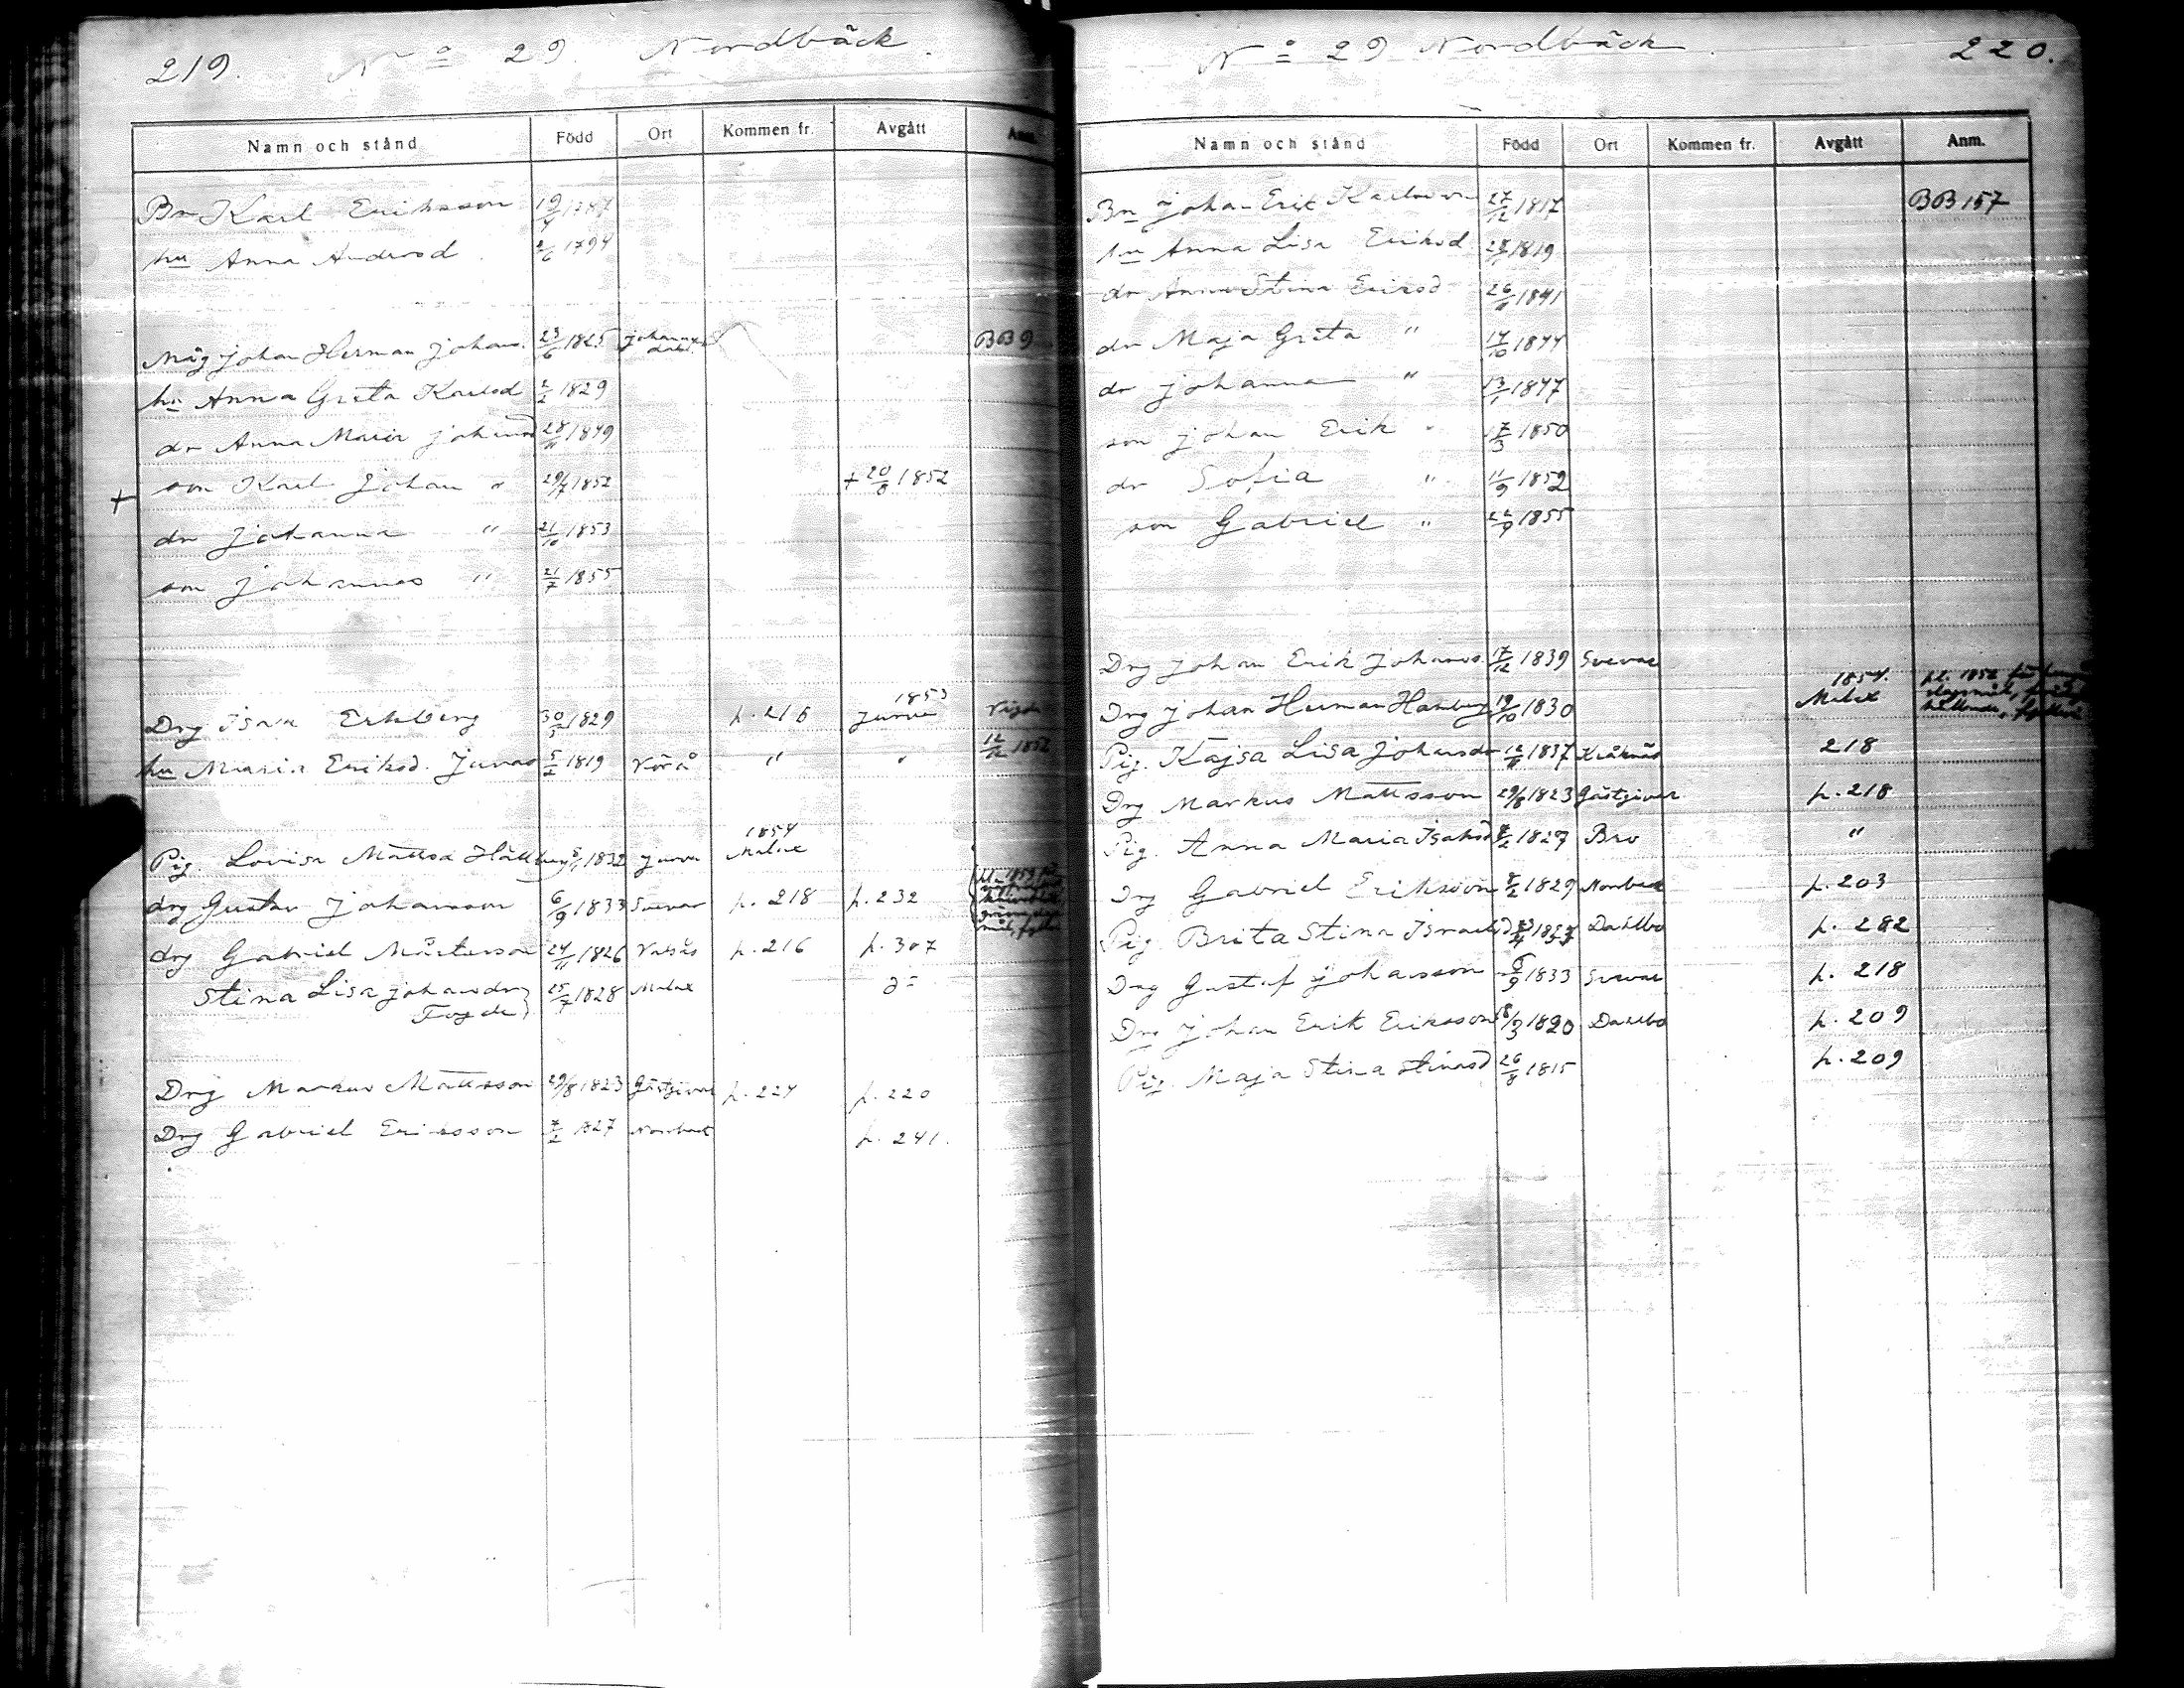 219. No 29. Nordbäck.
Namn och stånd Född Ort Kommen fr. Avgått Anm.
Bn Karl Eriksson 19/4 1787
hu Anna Andersd 2/6 1794
Måg Johan Herman Johans. 23/6 1825 BB 9
hu Anna Greta Karlsd 2/2 1829
dr Anna Maria Johansd 28/11 1849
+ son Karl Johan " 29/7 1852 + 20/8 1852
dr Johanna " 21/10 1853
son Johannes " 21/7 1855
1853
Drg Isak Ekberg 30/5 1829 p. 216 Jurva Vigda
hu Maria Eriksd. Jurva 5/2 1819 Vörå " " 12/12 1852
1854
Pig. Lovisa Mattsd 1832 Jurva Malax
drg Gustav Johansson 6/9 1833 Svevar p. 218 p. 232
drg Gabriel Mårtensson 24/11 1826 p. 216 p. 307
Stina Lisa Johansdr 25/7 1828 Malax d=
Drg Markus Mattsson 29/8 1823 Gästgivar p. 224 p. 220
Drg Gabriel Eriksson 7/2 1827 Norrback p. 241.
No 29 Nordbäck. 220.
Namn och stånd Född Ort Kommen fr. Avgått Anm.
Bn Johan Erik Karlsson 27/12 1817 BB 157
hu Anna Lisa Eriksd 1819
dr Anna Stina Eriksd 1841
dr Maja Greta " 17/10 1844
dr Johanna " 13/1 1847
son Johan Erik " 17/3 1850
dr Sofia " 11/9 1852
son Gabriel " 22/9 1855
Drg Johan Erik Johanss. 17/12 1839 Svevar
1854.
Drg Johan Herman 19/10 1830 Malax
Pig. Kajsa Lisa Johansdr 12/11 1837 Kråknäs 218
Drg Markus Mattsson 29/8 1823 Gästgivar p. 218
Pig. Anna Maria Isaksd 1827 Bro "
Drg Gabriel Eriksson 8/2 1829 Norrback p. 203
Pig. Brita Stina Israelsd Dahlbo p. 282
Drg Gustaf Johansson 6/9 1833 Svevar p. 218
Drg Johan Erik Eriksson 18/3 1820 Dahlbo p. 209
Pig. Maja Stina Stinasd 26/8 1815 p. 209